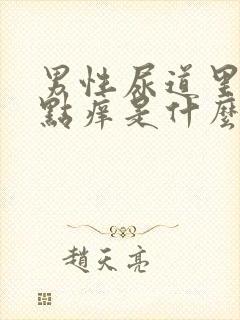 男性尿道里
點痒是什麼
趙天亮